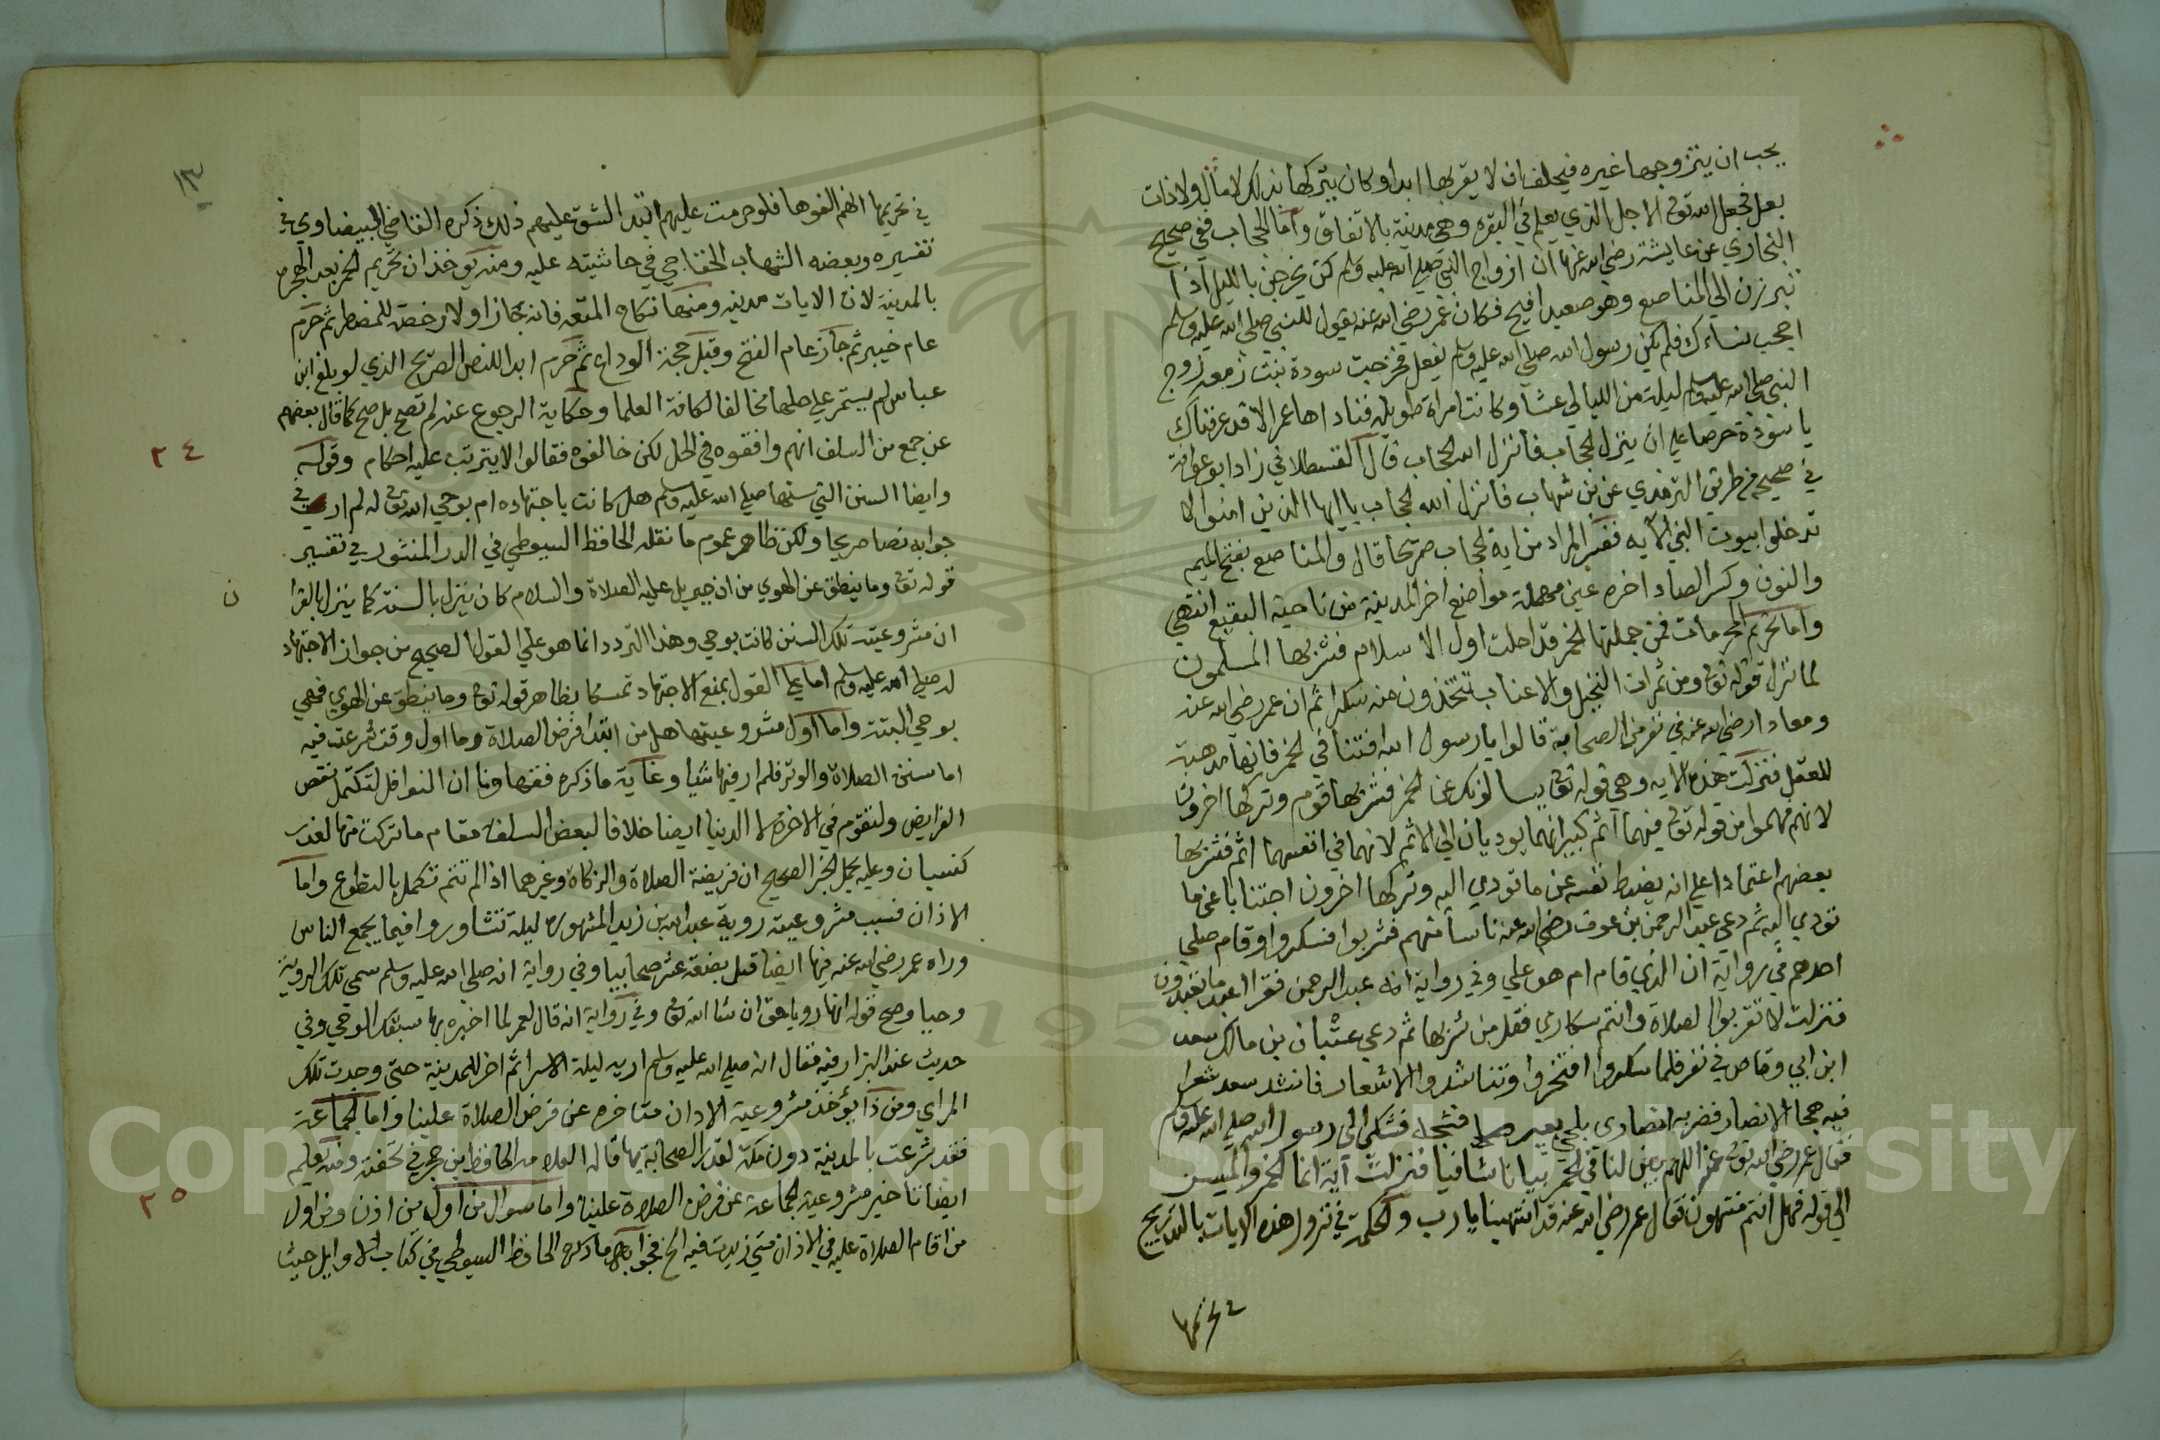 يحب ان يتزوجها غيره فيحلف ان لا يقربها ابدا وكان يتركها بذلك لا مال ولا ذات
بعل فجعل الله تع الاجل الذي يعلم في البقره وهي مدنية بالاتفاق واما الحجاب ففي صحيح
البخاري عن عايشة رضي الله عنها ان ازواج النبي صلي الله عليه وسلم كن يخرجن بالليل اذا
تبرزن الي المناصع وهو صعيد افيح فكان عمر رضي الله عنه يقول للنبي صلي الله عليه وسلم
احجب نساءك فلم يكن رسول الله صلي الله عليه وسلم يفعل فخرجت سودة بنت زمعة زوج
النبي صلي الله عليه وسلم ليلة من الليالي عشا وكانت امراة طويلة فناداها عمر الا قد عرفناك
يا سودة حرصا علي ان ينزل الحجاب فانزل الله الحجاب قال القسطلاني زاد ابو عوانة
في صحيحه من طريق الزبيدي عن بن شهاب فانزل الله الحجاب يا ايها الذين امنوا لا
تدخلوا بيوت النبي الايه ففسر المراد من اية الحجاب صريحا قال والمناصع بفتح الميم
والنون وكسر الصاد اخره عين مهملة مواضع اخر المدينة من ناحية البقيع انتهي
واما تحريم المحرمات فمن جملتها الخمر قد احلت اول الاسلام فشربها المسلمون
لما نزل قوله تع ومن ثمرات النخيل والاعناب تتخذون منه سكرا ثم ان عمر رضي الله عنه
ومعاذا رضي الله عنه في نفر من الصحابة قالوا يا رسول الله افتنا في الخمر فانها مذهبة
للعقل فنزلت هذه الايه وهي قوله تع يسالونك عن الخمر فشربها قوم وتركها اخرون
لانهم فهموا من قوله تع فيهما اثم كبير انهما يوديان الي الاثم لا انهما في انفسهما اثم فشربها
بعضهم اعتمادا علي انه يضبط نفسه عن ما تودي اليه وتركها اخرون اجتنابا عن ما
تودي اليه ثم دعي عبد الرحمن بن عوف رضي الله عنه ناسا منهم فشربوا فسكروا وقام صلي
احدهم في رواية ان الذي قام ام هو علي وفي رواية انه عبد الرحمن فقرا اعبد ما تعبدون
فنزلت لا تقربوا الصلاة وانتم سكاري فقل من شربها ثم دعي عتبان بن مالك سعد
ابن ابي وقاص في نفر فلما سكروا افتخروا وتناشدوا الاشعار فانشد سعد شعرا
فيه هجا الانصار فضربه انصاري بلحي بعير فشجه فشكي الي رسول الله صلي الله عليه وسلم
فقال عمر رضي الله تع عنه اللهم بين لنا في الخمر بيانا شافيا فنزلت آية انما الخمر والميسر
الي قوله فهل انتم منتهون فقال عمر رضي الله عنه قد انتهينا يا رب والحكمة في نزول هذه الايات بالتدريج
في تحريمها
١٣
في تحريمها انهم الفوها فلو حرمت عليهم ابتدا لشق عليهم ذلك ذكره القاضي البيضاوي في
تفسيره وبعضه الشهاب الخفاجي في حاشيته عليه ومنه يوخذ ان تحريم الخمر بعد الهجرة
بالمدينة لان الايات مدنيه ومنها نكاح المتعه فانه جاز اولا رخصة للمضطر ثم حرم
عام خيبر ثم جاز عام الفتح وقبل حجة الوداع ثم حرم ابدا للنص الصريح الذي لو بلغ ابن
عباس لم يستمر علي حلها مخالفا لكافة العلما وحكاية الرجوع عنه لم تصح بل صح كما قال بعضهم
٢٤
عن جمع من السلف انهم وافقوه في الحل لكن خالفوه فقالوا لا يترتب عليه احكام وقوله
وايضا السنن التي سنها صلي الله عليه وسلم هل كانت باجتهاده ام بوحي الله تع له لم ار في
جوابه نصا صريحا ولكن ظاهر عموم ما نقله الحافظ السيوطي في الدر المنثور في تفسير
ن
قوله تع وما ينطق عن الهوي من ان جبريل عليه الصلاة والسلام كان ينزل بالسنة كما ينزل بالقرا
ان مشروعية تلك السنن كانت بوحي وهذا التردد انما هو علي القول الصحيح من جواز الاجتهاد
له صلي الله عليه وسلم اما علي القول بمنع الاجتهاد تمسكا بظاهر قوله تع وما ينطق عن الهوي فهي
بوحي البتة واما اول مشروعيتها هل من ابتدا فرض الصلاة وما اول وقت شرعت فيه
اما سنن الصلاة والوتر فلم ار فيها شيا وغاية ما ذكره فقهاونا ان النوافل لتكمل نقص
الفرايض ولتقوم في الاخرة لا الدنيا ايضا خلافا لبعض السلف مقام ما تركت منها لعذر
كنسيان وعليه يحمل الخبر الصحيح ان فريضة الصلاة والزكاة وغيرهما اذا لم تتم تكمل بالتطوع واما
الاذان فسبب مشروعيته روية عبد الله بن زيد المشهورة ليلة تشاوروا فيما يجمع الناس
وراه عمر رضي الله عنه فيها ايضا قبل بضعة عشر صحابيا وفي رواية انه صلي الله عليه وسلم سمي تلك الروية
وحيا وصح قوله انها رويا حق ان شا الله تع وفي رواية انه قال لعمر لما اخبره بها سبقك الوحي وفي
حديث عند البزار فيه مقال انه صلي الله عليه وسلم اريه ليلة الاسرا ثم اخر للمدينة حتي وجدت تلك
المراي ومن ذا يوخذ مشروعية الاذان متاخره عن فرض الصلاة علينا واما الجماعة
فقد شرعت بالمدينة دون مكة لقهر الصحابة بها قاله العلامه الحافظ ابن حجر في تحفته ومنه تعلم
٢٥
ايضا تاخير مشروعية الجماعة عن فرض الصلاة علينا واما سوال من اول من اذن ومن اول
من اقام الصلاة عليه في الاذان متي زيدت فيه الخ فجوابه ما ذكره الحافظ السيوطي في كتاب الاوايل حيث
Copyright © King Saud University
195